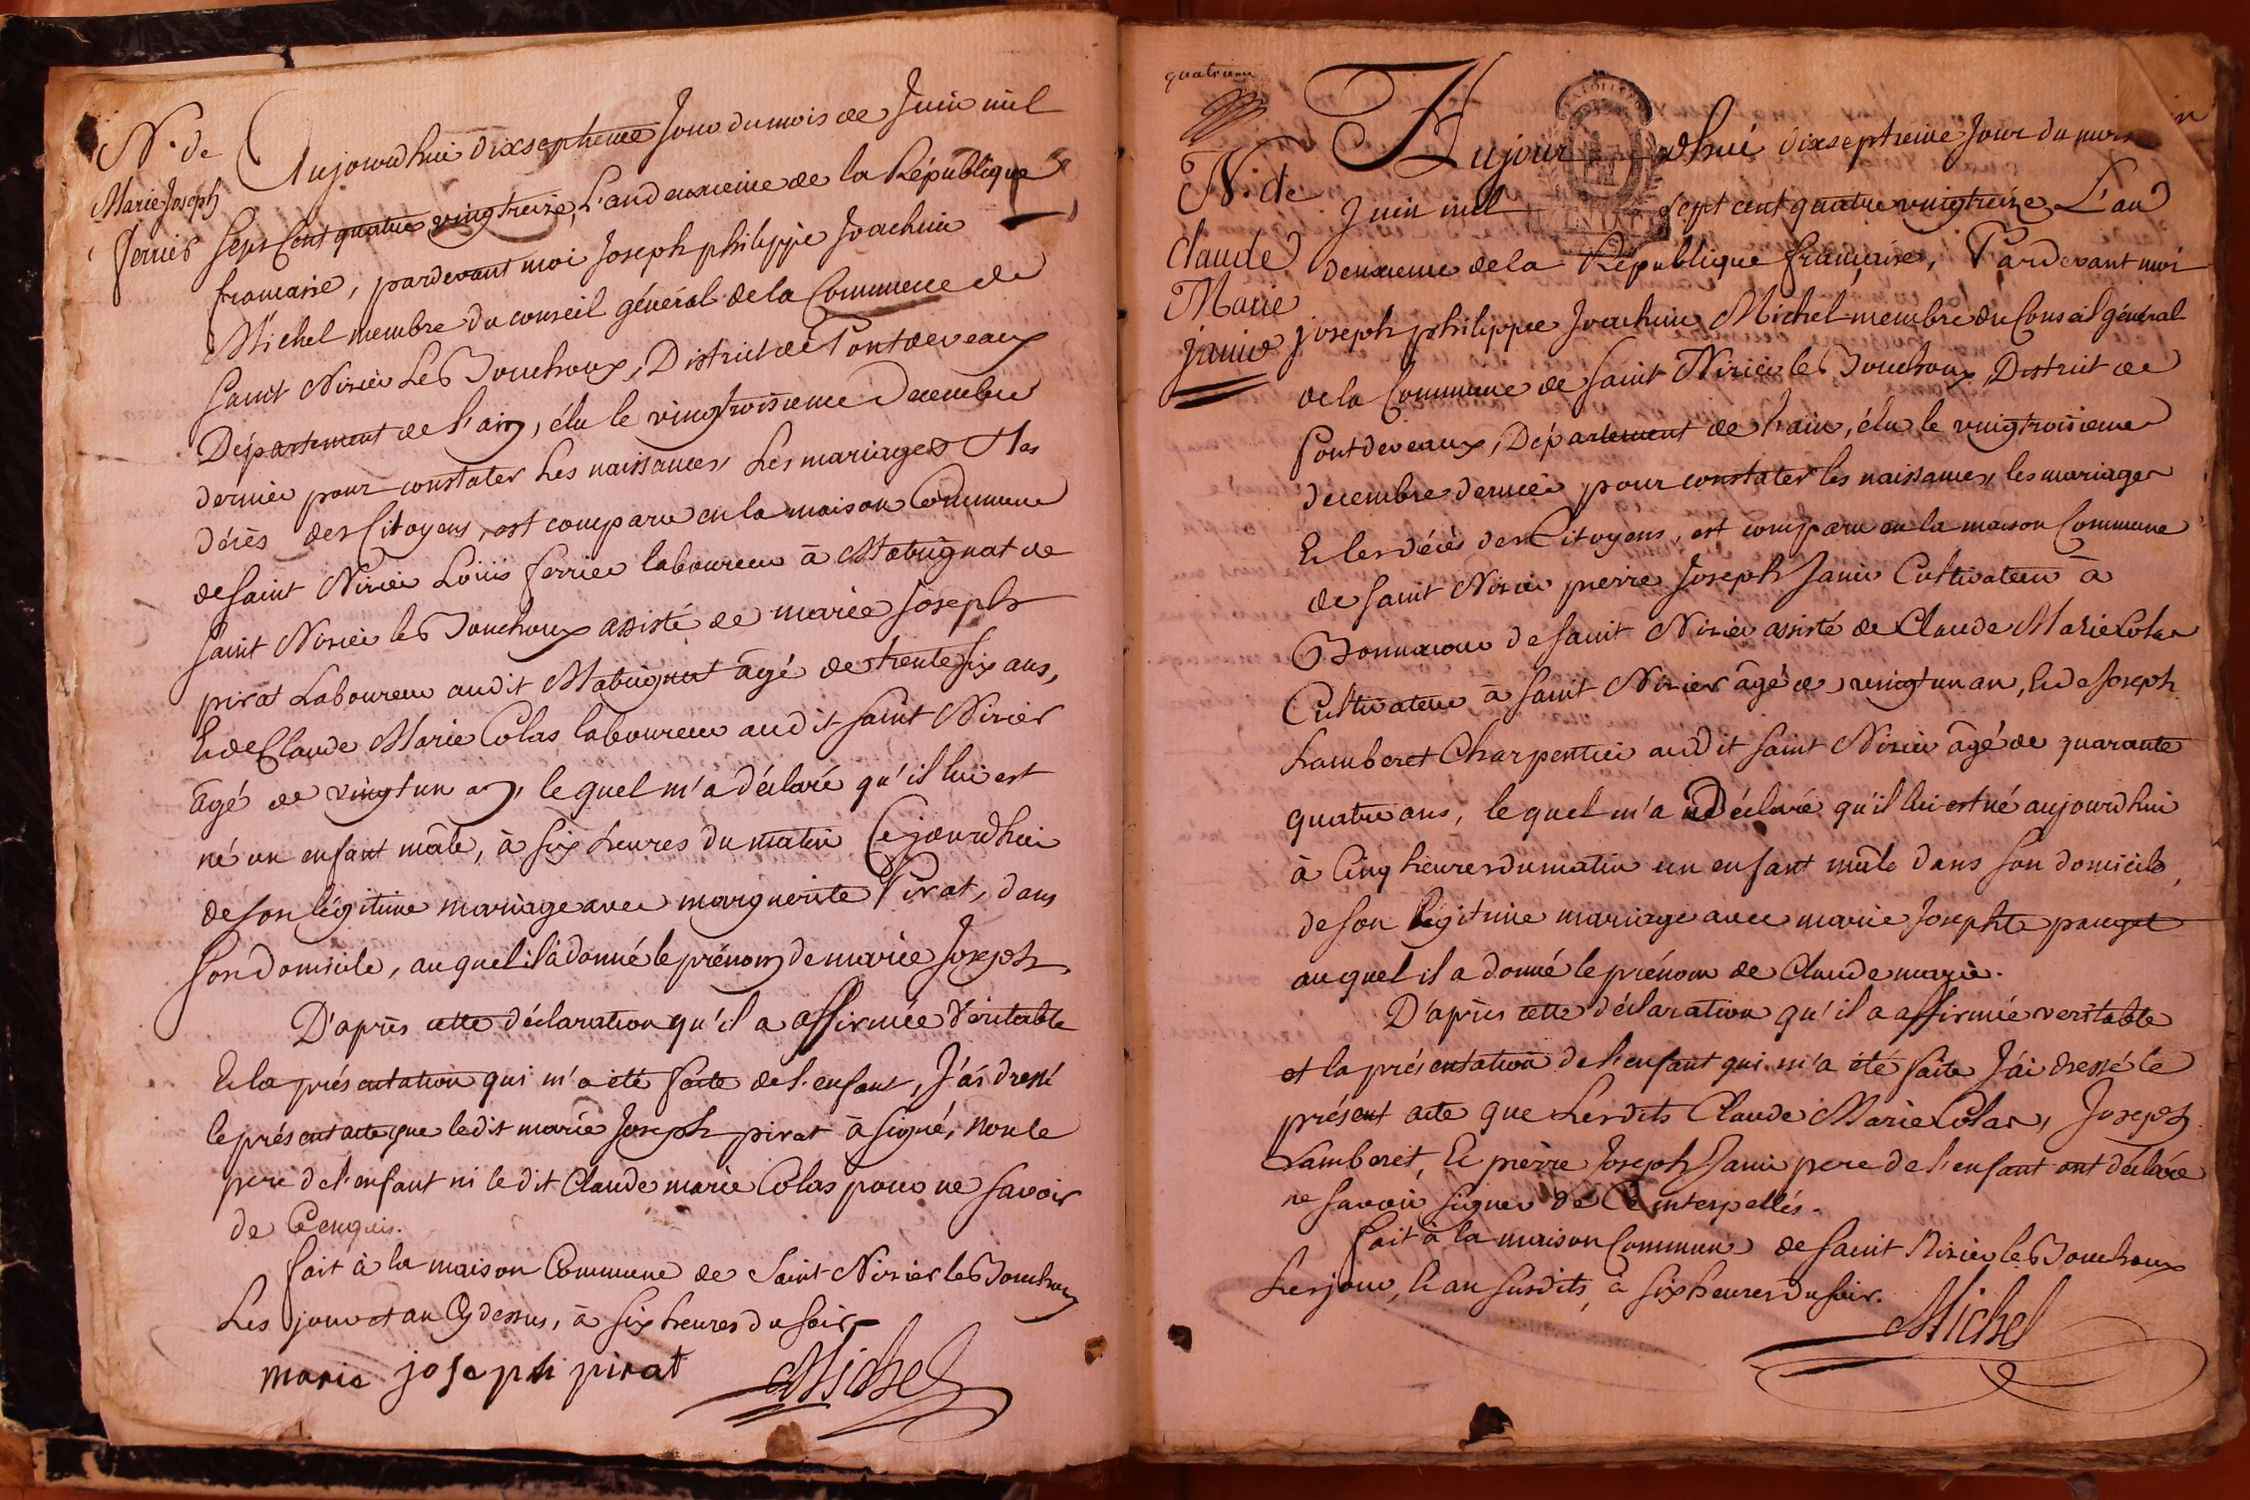 N.ce de
Marie Joseph
ferrier
Aujourdhui dixseptieme Jour du mois de Juin mil
Sept Cent quatre vingt treize, L'an deuxieme de la République
francaise, pardevant moi Joseph philippe Joachim
Michel membre du conseil général de la Commune de
Saint Nizier Le Bouchoux, District de Pontdeveaux
Département de l'ain, élu le vingttroisieme Decembre
dernier pour constater Les naissances, Les mariages & les
décès des Citoyens, est comparu en la maison Commune
de Saint Nizier Louis ferrier laboureur à Matrignat de
Saint Nizier le Bouchoux assisté de marie Joseph
pirat Laboureur audit Matrignat âgé de trente six ans,
Et de Claude Marie Colas laboureur audit Saint Nizier
âgé de vingt un an, le quel m'a déclaré qu'il lui est
né un enfant mâle, à six heures du matin Cejourdhui
de son légitime mariage avec marguerite Pirat, dans
son domicile, auquel il a donné le prénom de marie Joseph
D'après cette déclaration qu'il a affirmée véritable
Et la présentation qui m'a été faite de l'enfant, J'ai dressé
le présent acte que ledit marie Joseph pirat à signé, non le
pere de l'enfant ni ledit Claude marie Colas pour ne savoir
de Ce enquis.
fait à la maison Commune de Saint Nizier le Bouchoux
Les jour et an Cy dessus, à six heures du soir
marie joseph pirat Michel
quatrieme
6
N.ce de
Claude
Marie
janin
Aujourdhui dixseptieme Jour du mois
Juin mil sept cent quatre vingt treize L'an
deuxieme de la République française, Pardevant moi
joseph philippe Joachim Michel membre du Conseil général
de la Commune de Saint Nizier le Bouchoux, District de
Pontdeveaux, Département de l'ain, élu le vingttroisieme
decembre dernier pour constater les naissances, les mariages
Et les décès des Citoyens, est comparu en la maison Commune
de Saint Nizier pierre Joseph Janin Cultivateur à
de Saint Nizier assisté de Claude Marie Colas
Cultivateur à Saint Nizier âgé de vingt un an, Et de Joseph
Lamberet Charpentier audit Saint Nizier âgé de quarante
quatre ans, le quel m'a déclaré qu'il lui est né aujourdhui
à Cinq heures du matin un enfant mâle dans son domicile,
de son légitime mariage avec marie Josephte pauget
auquel il a donné le prénom de Claude marie.
D'après cette déclaration qu'il a affirmée veritable
et la présentation de l'enfant qui m'a été faite J'ai dressé le
présent acte que Lesdits Claude Marie Colas, Joseph
Lamberet, Et pierre Joseph Janin pere de l'enfant ont déclaré
ne savoir signer de Ce interpellés.
fait à la maison Commune de Saint Nizier le Bouchoux
Les jour, Et an susdits, à six heures du soir.
Michel